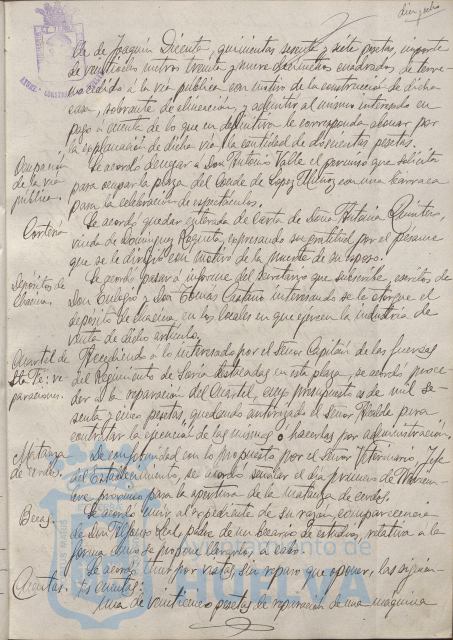 dieciocho
lla de Joaquín Dicenta, quinientas sesenta y siete pesetas, importe
de veintiocho metros treinta y nueve decímetros cuadrados de terre-
no cedido a la vía pública con motivo de la construcción de dicha
casa, sobrante de alineación, y admitir al mismo interesado en
pago a cuenta de lo que en definitiva le corresponda abonar por
la explanación de dicha vía la cantidad de doscientas pesetas.
Ocupación
de la vía
pública.
Se acordó denegar a Don Antonio Valle el permiso que solicita
para ocupar la plaza del Conde de López Muñoz con una barraca
para la celebración de espectáculos.
Cortesía
Se acordó quedar enterada de Carta de Doña Antonia Quintero,
viuda de Domínguez Roqueta, expresando su gratitud por el pésame
que se le dirigió con motivo de la muerte de su esposo.
Depósitos de
Chacina.
Se acordó pasar a informe del Secretario que suscribe, escritos de
Don Eulogio y Don Tomás Castaño interesando se le otorgue el
depósito de chacina, en los locales en que ejercen la industria de
venta de dicho artículo.
Cuartel de
Sta Fé: re-
paraciones.
Accediendo a lo interesado por el Señor Capitán de las fuerzas
del Regimiento de Soria destacadas en esta plaza, se acordó proce-
der a la reparación del Cuartel, cuyo presupuesto es de mil se-
senta y cinco pesetas, quedando autorizado el Señor Alcalde para
contratar la ejecución de las mismas o hacerlas por administración.
Matanza
de cerdos.
De conformidad con lo propuesto por el Señor Veterinario, Jefe
del Establecimiento, se acordó señalar el día primero de Noviem-
bre próximo para la apertura de la matanza de cerdos.
Becas.
Se acordó unir al expediente de su razón, comparecencia
de Don Ildefonso Leal, padre de un becario de estudios, relativa a la
forma
Cuentas.
Se acordó unir por vistas, sin reparo que oponer, las siguien-
tes cuentas:
Una de veinticinco pesetas de reparación de una máquina
Ayuntamiento de
HUELVA